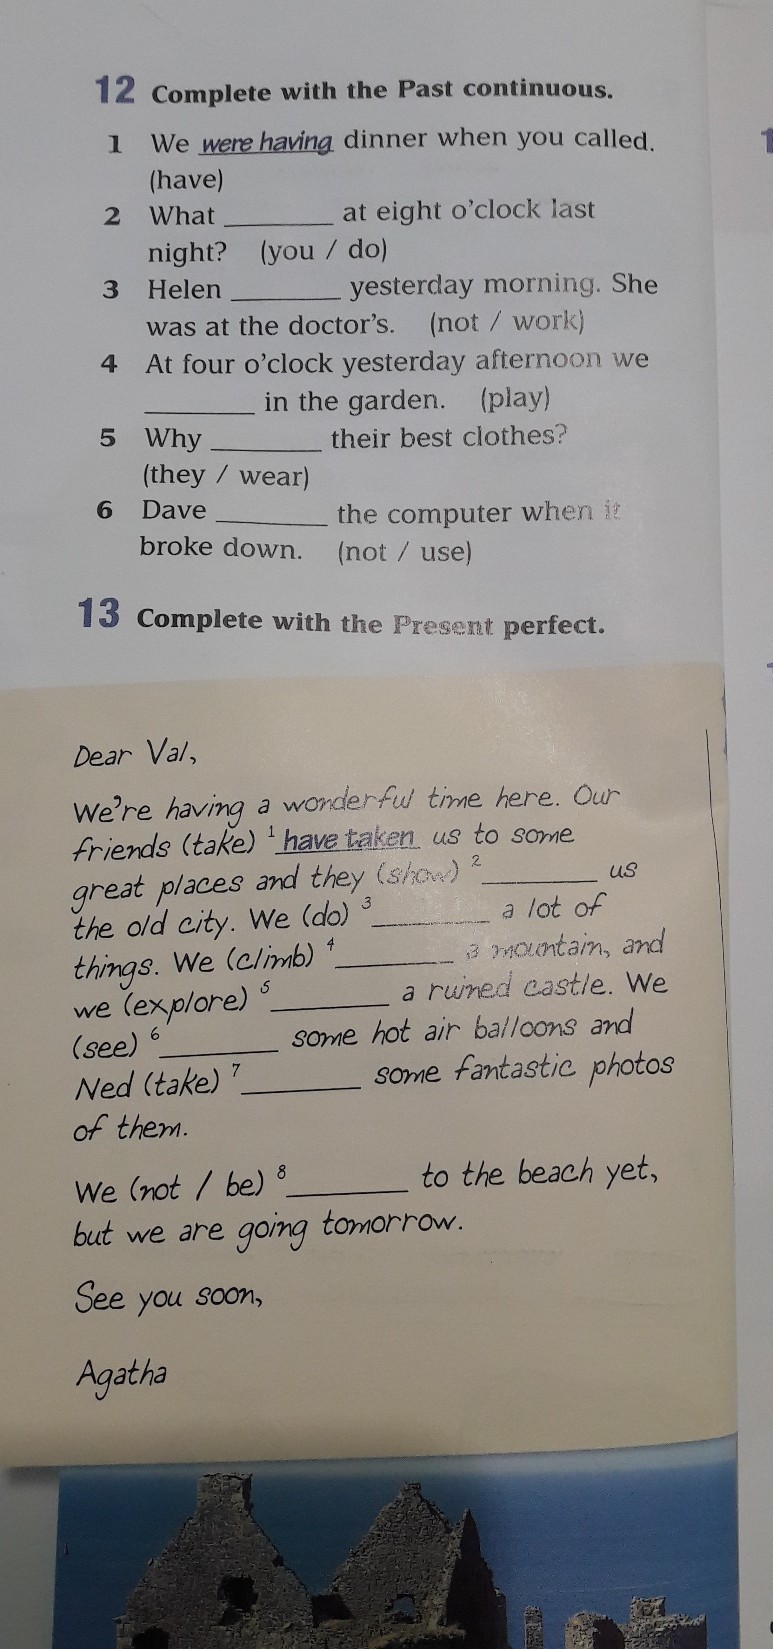 12 Complete with the Past continuous.
1 We were having dinner when you called.
(have)
2 What ________ at eight o'clock last
night? (you / do)
3 Helen ________ yesterday morning. She
was at the doctor's. (not / work)
4 At four o'clock yesterday afternoon we
________ in the garden. (play)
5 Why ________ their best clothes?
(they / wear)
6 Dave ________ the computer when it
broke down. (not / use)
13 Complete with the Present perfect.
Dear Val,
We're having a wonderful time here. Our
friends (take) 1 have taken us to some
great places and they (show) 2 ________ us
the old city. We (do) 3 ________ a lot of
things. We (climb) 4 ________ a mountain, and
we (explore) 5 ________ a ruined castle. We
(see) 6 ________ some hot air balloons and
Ned (take) 7 ________ some fantastic photos
of them.
We (not / be) 8 ________ to the beach yet,
but we are going tomorrow.
See you soon,
Agatha